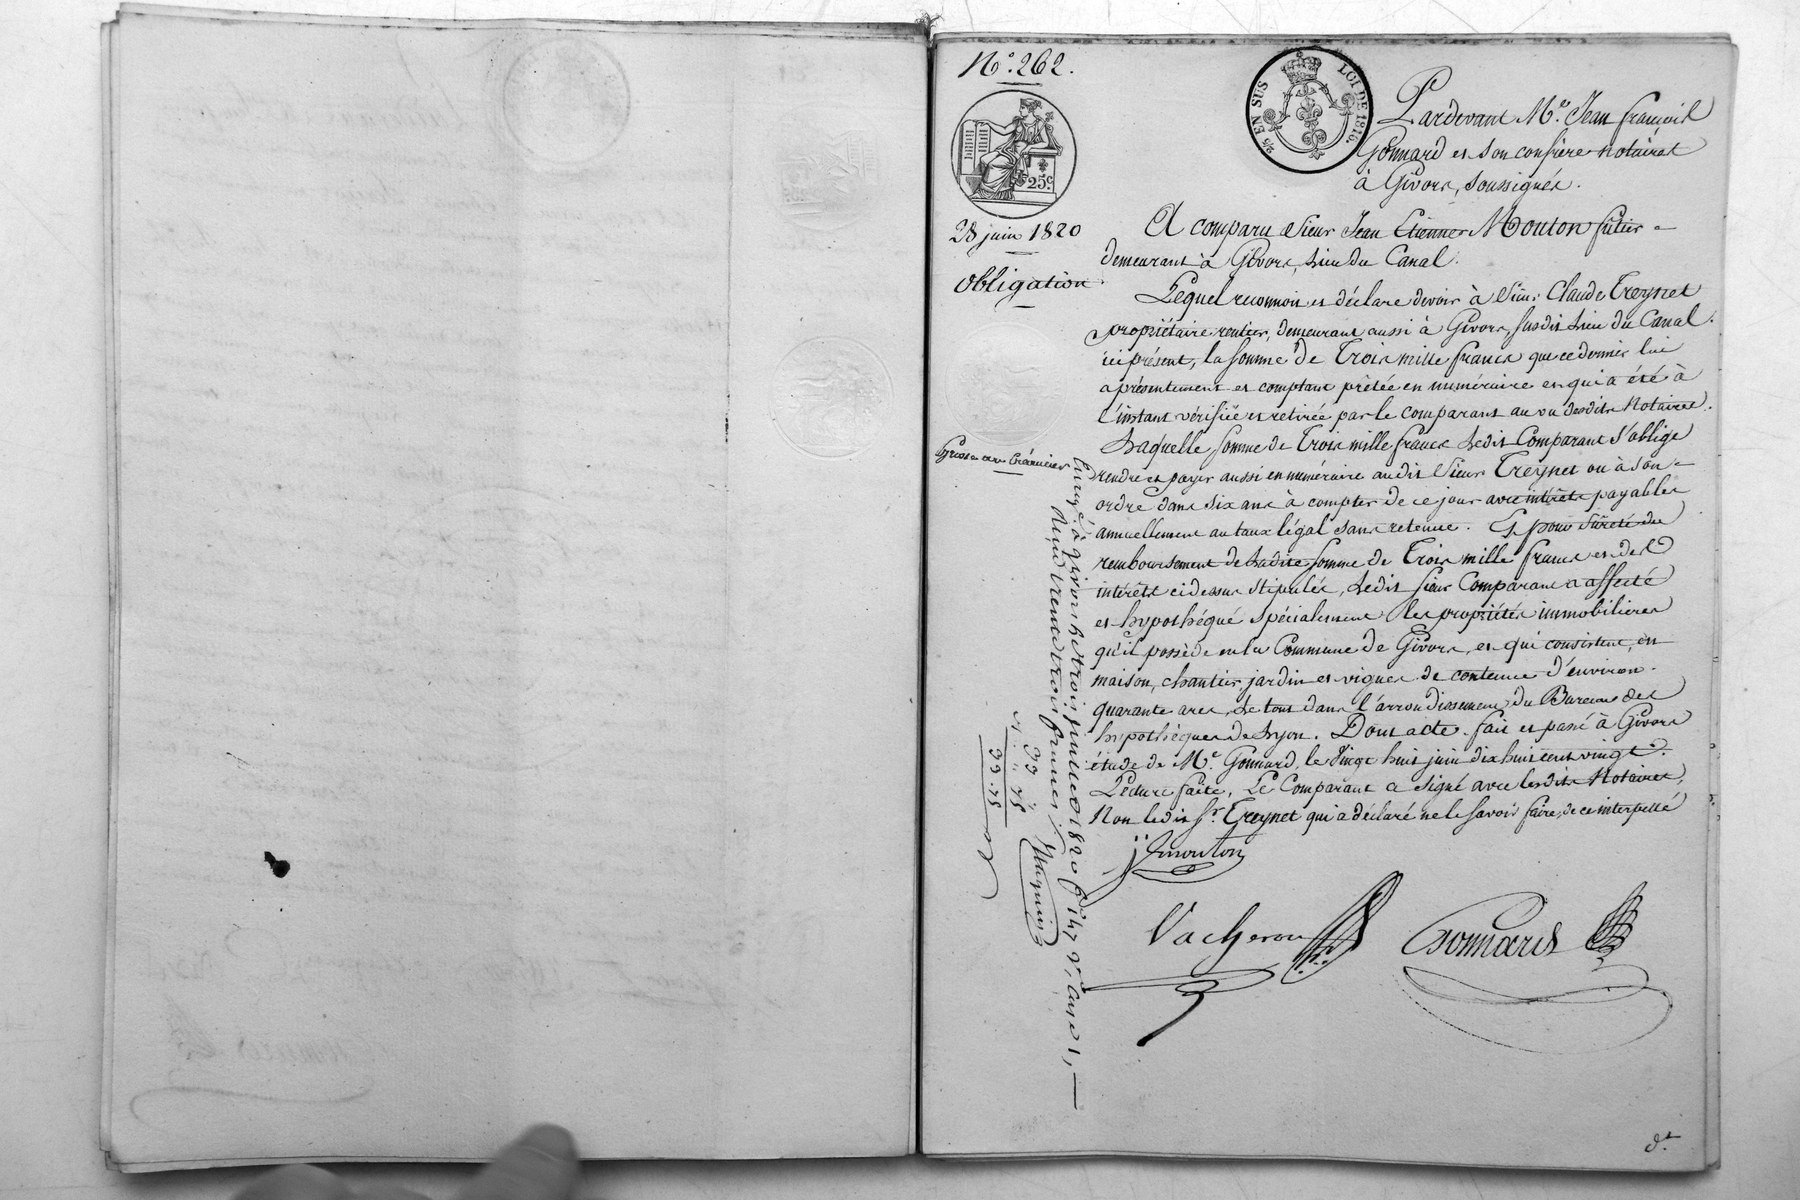 N.° 262.
25 EN SUS LOI DE 1816.
25 c.
28 juin 1820
Obligation
Grosse au Créancier
Pardevant M.e Jean françois
Gonnard et son confrère Notaires
à Givors, soussignés.
A comparu Sieur Jean Etienne Mouton futier
demeurant à Givors, lieu du Canal.
Lequel reconnoit et déclare devoir à Sieur Claude Treynet
propriétaire rentier, demeurant aussi à Givors, susdit lieu du Canal.
ici présent, la somme de Trois mille francs que ce dernier lui
a présentement et comptant prêtée en numéraire et qui a été à
l'instant vérifiée et retirée par le comparant au vu desdits Notaires.
Laquelle somme de Trois mille francs ledit Comparant s'oblige
rendre et payer aussi en numéraire audit Sieur Treynet ou à son
ordre dans six ans à compter de ce jour avec intérêts payables
annuellement au taux légal sans retenue. Et pour sûreté du
remboursement de ladite somme de Trois mille francs et des
intérêts ci dessus stipulés, ledit sieur Comparant a affecté
et hypothéqué spécialement les propriétés immobilières
qu'il possède en la Commune de Givors, et qui consistent, en
maison, chantier, jardin et vignes de contenue d'environ
quarante ares, le tout dans l'arrondissement du Bureau des
hypothèques de Lyon. Dont acte. fait et passé à Givors
étude de M.e Gonnard, le vingt huit juin dix huit cent vingt.
Lecture faite, Le Comparant a signé avec lesdits Notaires,
Non ledit S.r Treynet qui a déclaré ne le savoir faire, de ce interpellé
j: j Emouton
Vacheron
Gonnard
Enreg.é à Givors le trois juillet 1820 f.° 147 v.° case 1,
trente trois francs
33 "
" 75
33 . 75
d.t